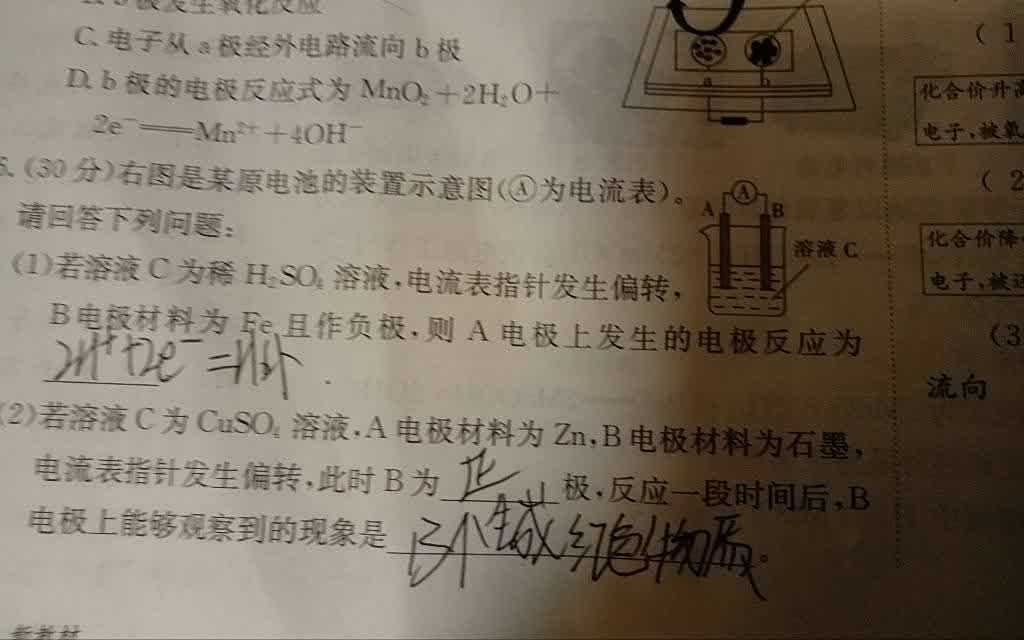 极发生氧化反应
C. 电子从 a 极经外电路流向 b 极
D. b 极的电极反应式为 MnO₂+2H₂O+
2e⁻══Mn²⁺+4OH⁻
a
b
(30 分)右图是某原电池的装置示意图(Ⓐ为电流表)。
请回答下列问题:
A
A
B
溶液 C
(1)若溶液 C 为稀 H₂SO₄ 溶液,电流表指针发生偏转,
B 电极材料为 Fe 且作负极,则 A 电极上发生的电极反应为
2H⁺+2e⁻=H₂↑.
(2)若溶液 C 为 CuSO₄ 溶液,A 电极材料为 Zn,B 电极材料为石墨,
电流表指针发生偏转,此时 B 为 正 极,反应一段时间后,B
电极上能够观察到的现象是 生成红色物质。
新教材
(1
化合价升高
电子,被氧
(2
化合价降
电子,被还
(3
流向